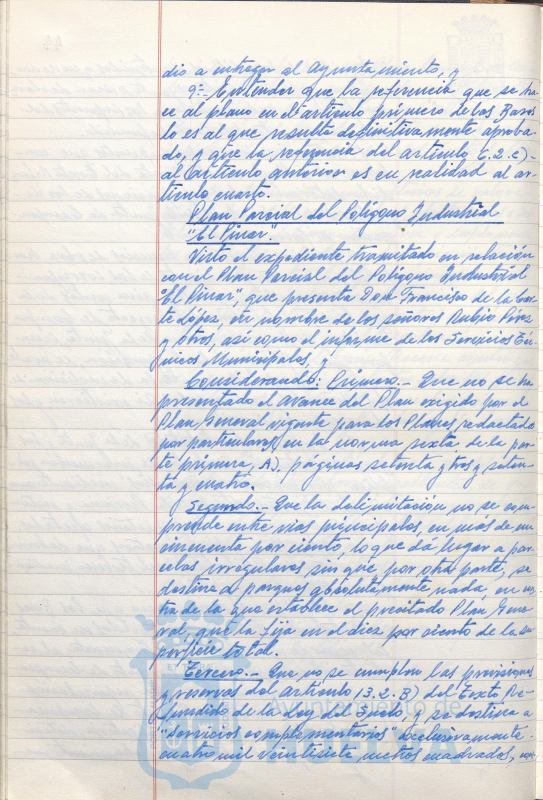 dio a entregar al Ayuntamiento, y
9º.- Entender que la referencia que se ha-
ce al plano en el artículo primero de las Bases
lo es al que resulte definitivamente aproba-
do, y que la referencia del artículo 6.2.c)-
al artículo anterior es en realidad al ar-
tículo cuarto.
Plan Parcial del Polígono Industrial
"El Pinar".
Visto el expediente tramitado en relación
con el Plan Parcial del Polígono Industrial
"El Pinar", que presenta Don Francisco de la
te López, en nombre de los señores Rubio Pérez
y otros, así como el informe de los Servicios Téc-
nicos Municipales, y
Considerando: Primero.- Que no se ha
presentado el avance del Plan exigido por el
Plan General vigente para los Planes redactados
por particulares, en la norma sexta de la par-
te primera, A), páginas setenta y tres y seten-
ta y cuatro.
Segundo.- Que la delimitación no se com-
prende entre vías principales, en más de un
cincuenta por ciento, lo que dá lugar a par-
celas irregulares sin que por otra parte, se
destine a parques absolutamente nada, en con-
tra de lo que establece el precitado Plan Gene-
ral, que la fija en el diez por ciento de la su-
perficie total.
Tercero.- Que no se cumplen las previsiones
y reservas del artículo 13.2.B) del Texto Re-
fundido de la Ley del Suelo, y se destina a
"Servicios complementarios" exclusivamente-
cuatro mil veintisiete metros cuadrados,
Ayuntamiento de